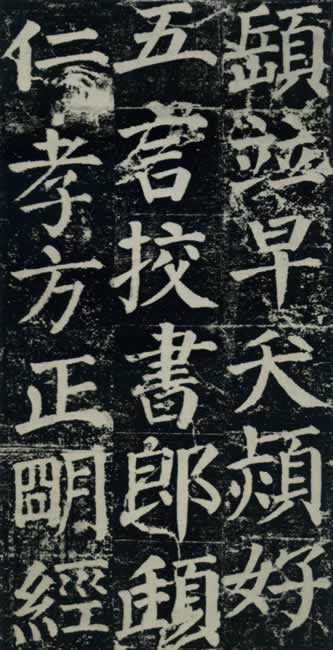 並早夭熲好
五言挍書郎頲
仁孝方正明經